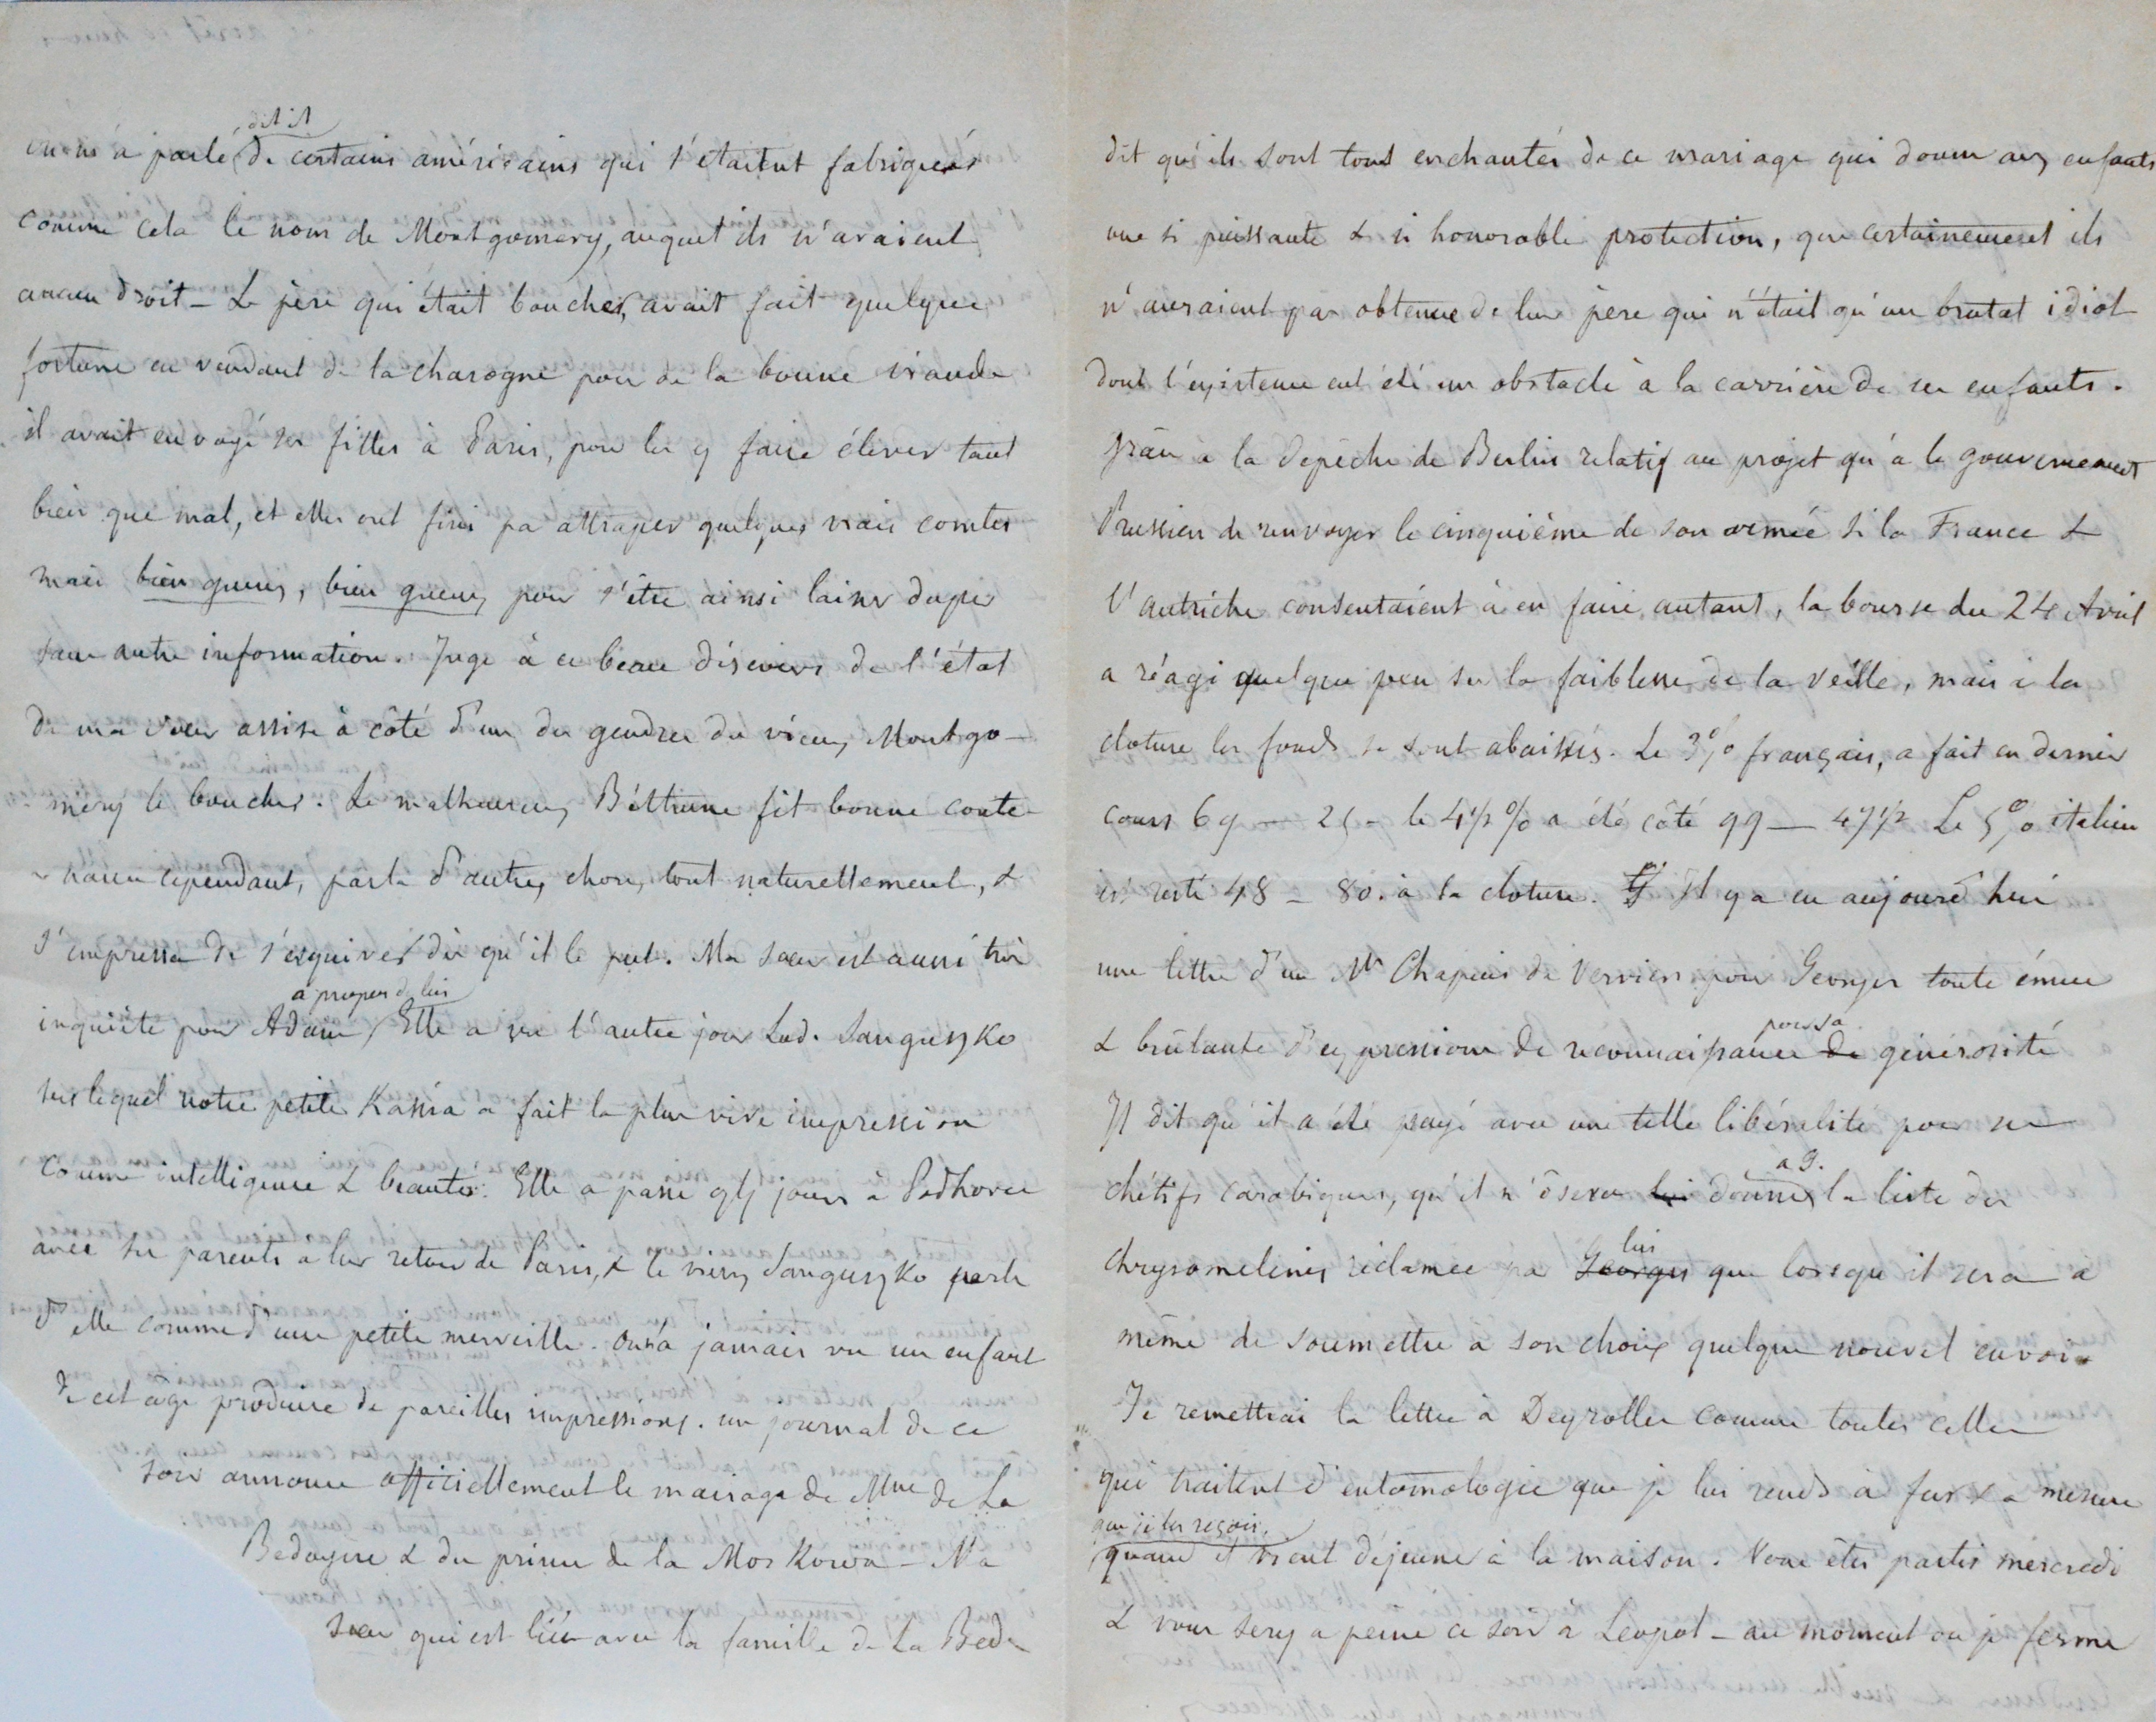 dit il
on m'a parlé de certains américains qui s'étaient fabriqués
comme cela le nom de Montgomery, auquel ils n'avaient
aucun droit - Le père qui était boucher, avait fait quelque
fortune en vendant de la charogne pour de la bonne viande
il avait envoyé ses filles à Paris, pour les y faire élever tant
bien que mal, et elles ont fini pa attraper quelques vrais comtes
mais bien gueux, bien gueux, pour s'être ainsi laisser duper
sans autre information. Juge à ce beau discours de l'état
de ma sœur assise à côté d'un des gendres du vieux Montgo-
méry le boucher. Le malheureux Béthune fit bonne conte-
nance cependant, parla d'autres choses, tout naturellement, &
s'empressa de s'esquiver dès qu'il le put. Ma sœur est aussi très
a propos de lui
inquiète pour Adam, Elle a vu l'autre jour Lad. Sanguszko
sur lequel notre petite Kassia a fait la plus vive impression
comme intelligence & beauté. Elle a passé qlq jours a Podhorce
avec ses parents a leur retour de Paris, & le vieux Sanguszko parle
d'elle comme d'une petite merveille. on n'a jamais vu un enfant
de cet age produire de pareilles impressions. un journal de ce
soir annonce officiellement le mariage de Mme de La
Bedoyère & du prince de la Moskowa - Ma
sœur qui est liée avec la famille de La Bedo
dit qu'ils sont tous enchantés de ce mariage qui donne aux enfants
une si puissante & si honorable protection, que certainement ils
n'auraient pas obtenue de leur père qui n'était qu'un brutal idiot
dont l'existence eut été un obstacle à la carrière de ses enfants.
grâce à la dépêche de Berlin relatif au projet qu'a le gouvernement
Prussien de renvoyer le cinquième de son armée si la France &
l'autriche consentaient à en faire autant, la bourse du 24 Avril
a réagi quelque peu sur la faiblesse de la veille, mais à la
cloture les fonds se sont abaissés. Le 3% français, a fait en dernier
cours 69 - 25 - le 4 1/2 % a été côté 99 - 47 1/2 Le 5% italien
est resté 48 - 80. à la cloture. Il y a eu aujourd'hui
une lettre d'un Mr Chapuis de Verviers pour Georges toute émue
pour sa
& brûlante d'expressions de reconnaissance de générosité
Il dit qu'il a été payé avec une telle libéralité pour ses
a G.
chétifs carabiques, qu'il n'osera lui donner la liste des
lui
chrysomelines réclamée pa Georges que lorsqu'il sera à
même de soumettre à son choix quelque nouvel envoi.
Je remettrai la lettre à Deyrolle comme toutes celles
qui traitent d'entomologie que je lui rends à fur & a mesure
que je les reçois,
quand il vient déjeuner à la maison. Vous êtes partis mercredi
& vous serez a peine ce soir à Leopol - au moment ou je ferme